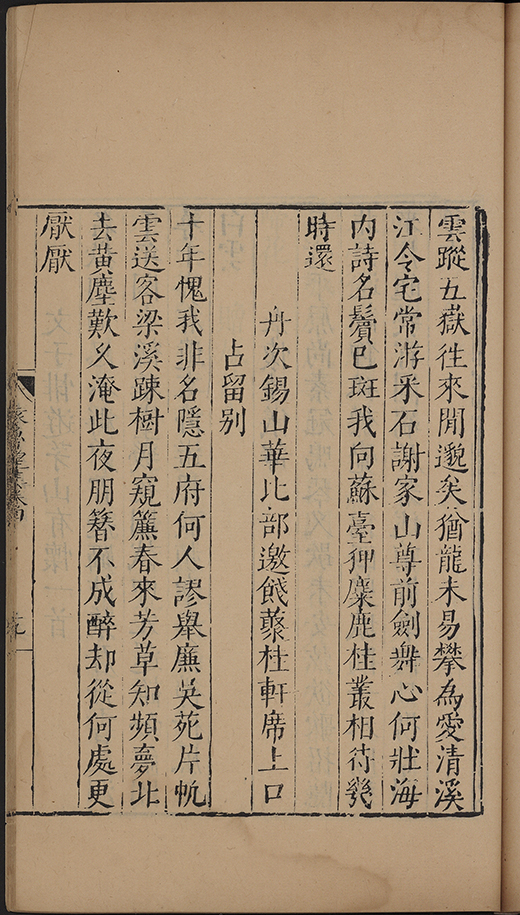 雲蹤五嶽徃來閒邈矣猶龍未易攀為愛清溪
江令宅常游采石謝家山尊前劍舞心何壯海
內詩名鬢已斑我向蘇臺狎麋鹿桂叢相待幾
時還
舟次錫山華比部邀餞藂桂軒席上口
占留别
十年愧我非名隱五府何人謬舉廉吳苑片帆
雲送客梁溪踈樹月窺簾春來芳草知頻夢北
去黄塵歎久淹此夜朋簪不成醉却從何處更
厭厭